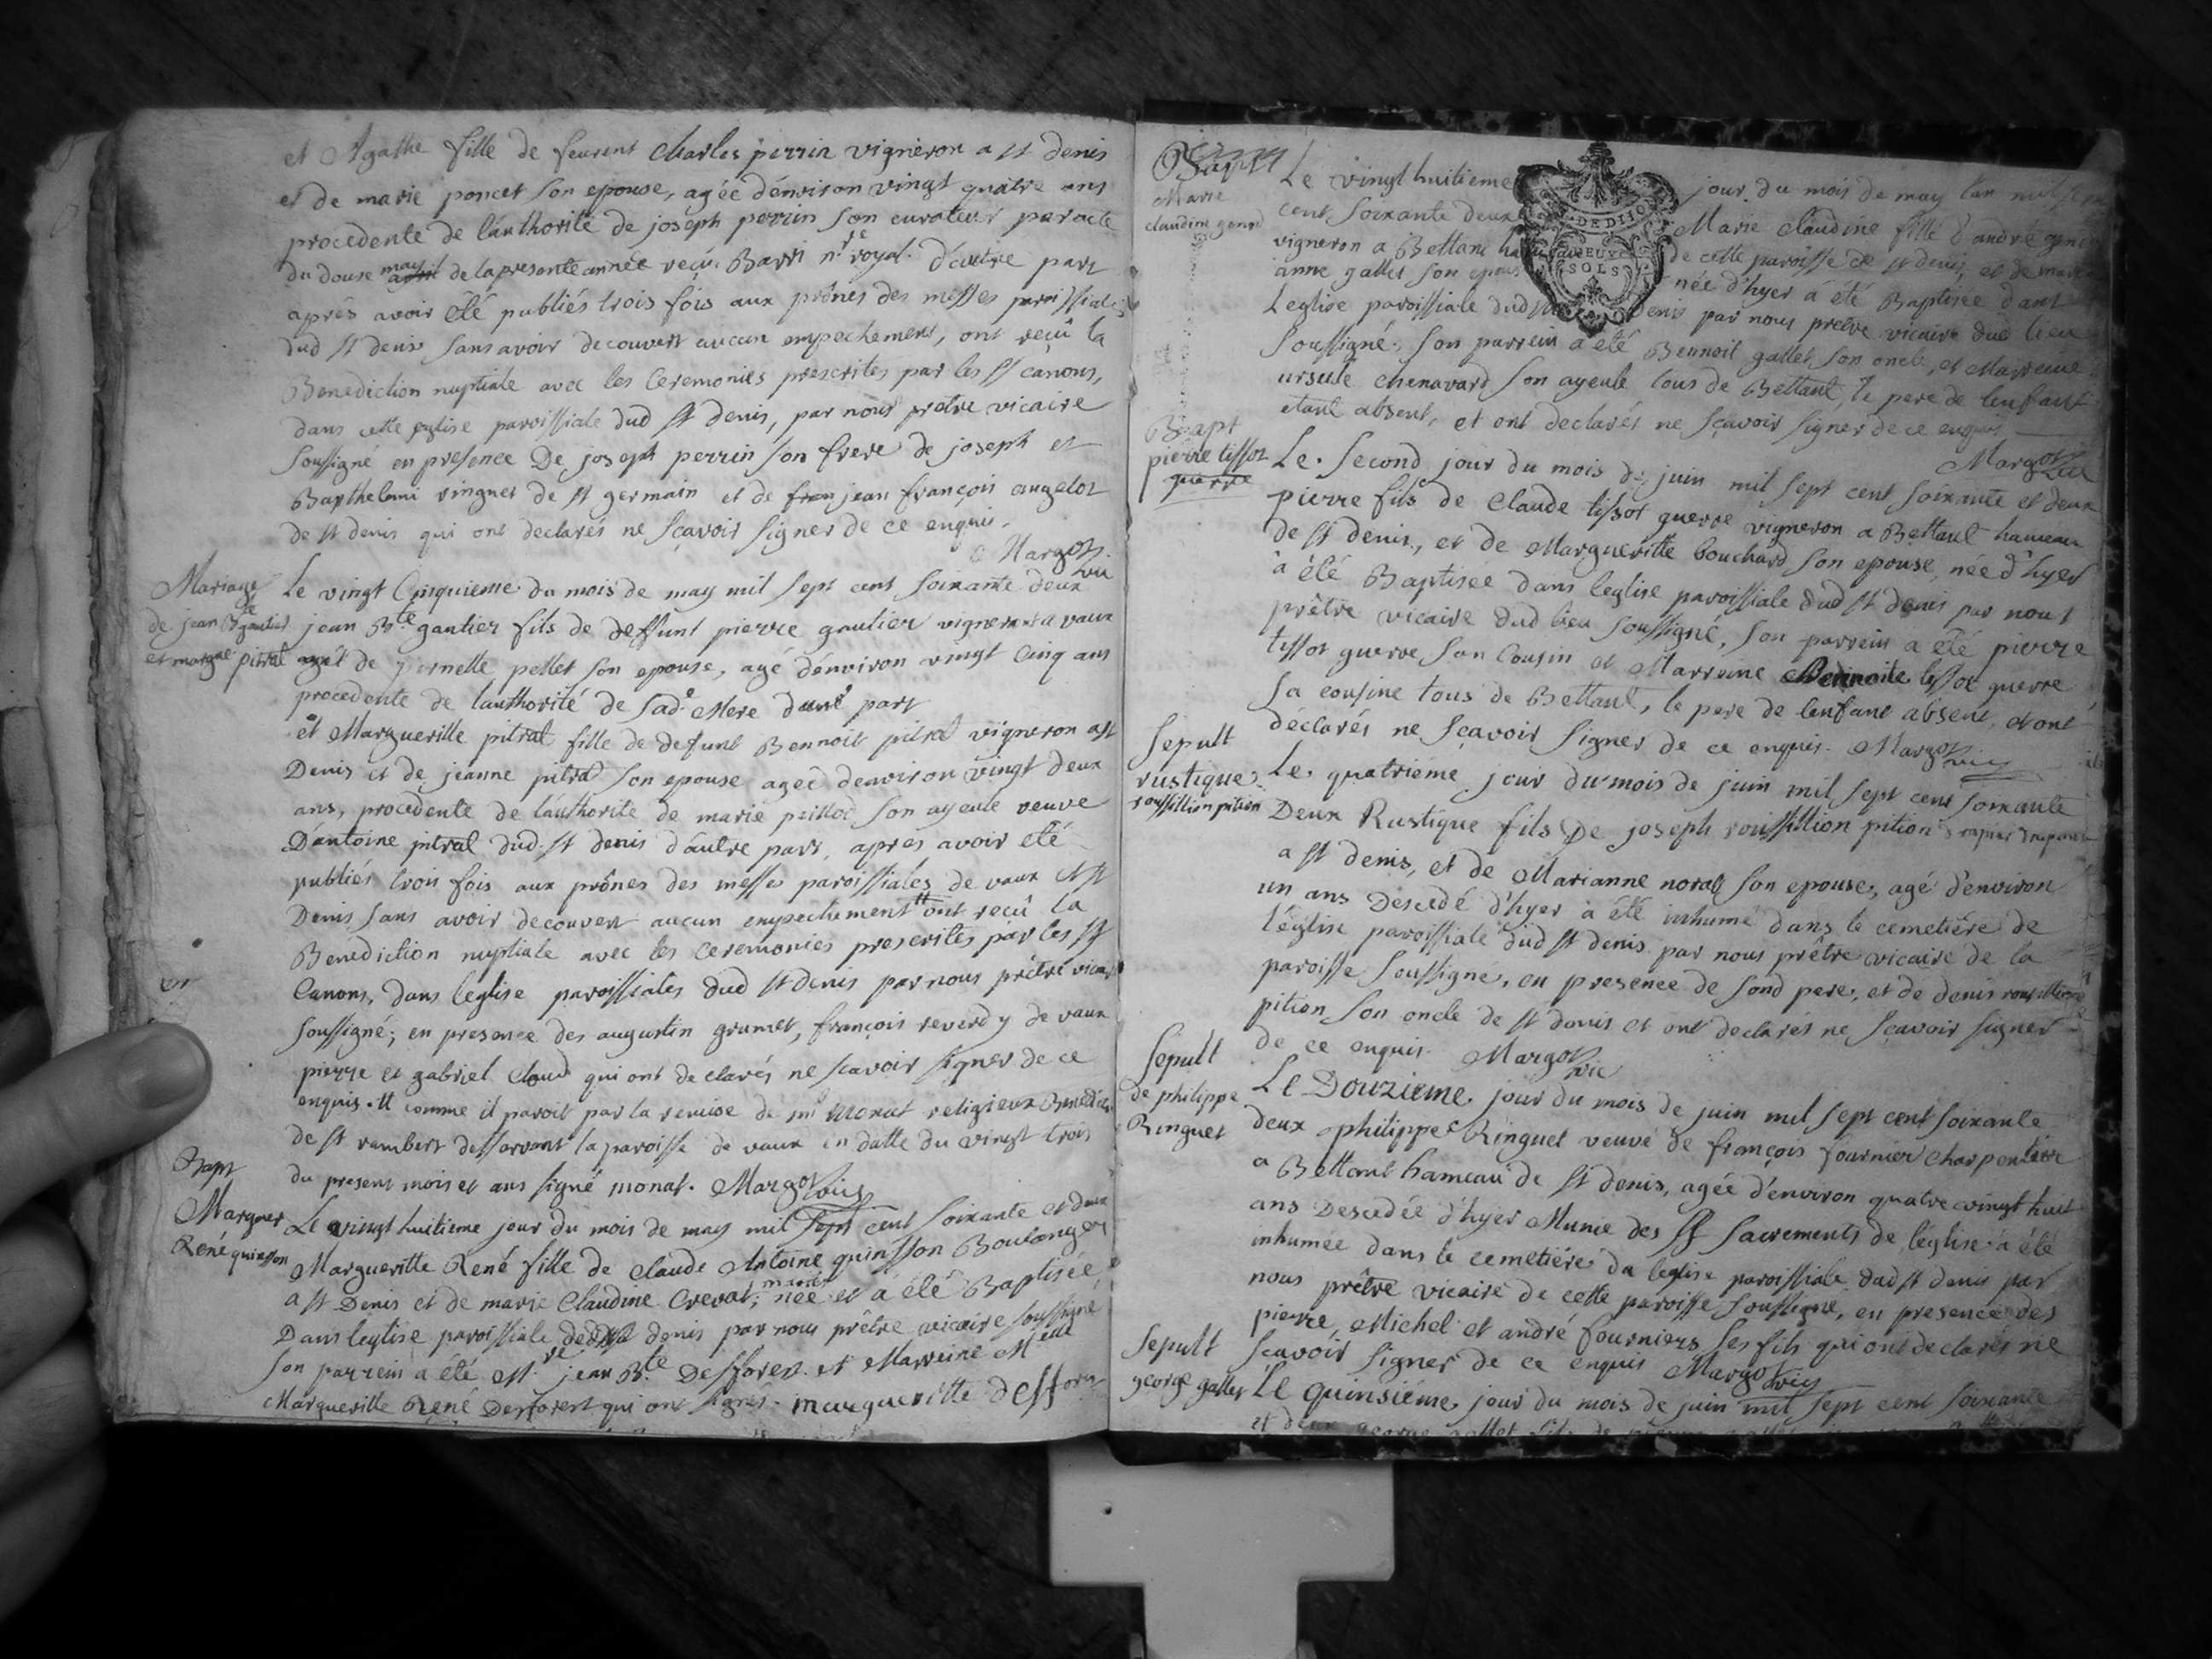 et Agathe fille de feurent Charles perrin vigneron a st denis
et de marie poncet son epouse, agée d'environ vingt quatre ans
procedente de l'authorité de joseph perrin son curateur par acte
du douse may de la presente année reçu Barri nre royal. d'autre part
aprés avoir été publiés trois fois aux prônes des messes paroissiales
dud st denis sans avoir decouvert aucun empechement, ont reçû la
Benediction nuptiale avec les Ceremonies prescrites par les SS canons,
dans cette eglise paroissiale dud st denis, par nous prêtre vicaire
soussigné en presence De joseph perrin son frere de joseph et
Barthelemi vingnet de st germain et de jean françois augelot
de st denis qui ont declarés ne sçavoir signer de ce enquis.
Margot vic
Mariage
de jean Bte gautier
et margte pitral
Le vingt Cinquieme du mois de may mil sept cent soixante deux
jean Bte gautier fils de deffunt pierre gautier vigneron a vaux
et de pernette pellet son epouse, agé d'environ vingt Cinq ans
procedente de l'authorité de sade Mere d'une part
et Margueritte pitrat fille de defunt Bennoit pitral vigneron a st
Denis et de jeanne pitral son epouse agée d'environ vingt deux
ans, procedente de l'authorité de marie peillod son ayeule veuve
D'antoine pitral dud. st denis d'autre part, aprés avoir eté
publiés trois fois aux prônes des messes paroissiales de vaux et st
Denis sans avoir decouvert aucun empechement # ont reçû la
Benediction nuptiale avec les ceremonies prescrites par les SS
Canons, dans l'eglise paroissiales dud st denis par nous prêtre vicaire
soussigné; en presence des augustin grumet, françois reverdy de vaux
pierre et gabriel Cloud qui ont declarés ne scavoir signer de ce
enquis. # comme il paroit par la remise de mr monat religieux Benedictin
de st rambert desservant la paroisse de vaux en datte du vingt trois
du present mois et ans signé monat. Margot vic
Bapt
Marguer
René quinsson
Le vingt huitieme jour du mois de may mil sept cent soixante et deux
Margueritte René fille de Claude Antoine quinsson Boulanger
a st Denis et de marie Claudine Crevat, mariés née et a été Baptisée
Dans l'eglise paroissiale dud st denis par nous prêtre vicaire soussigné
son parrein a été Mre jean Bte Desforest et Marreine Melle
Margueritte René Desforest qui ont signés. margueritte defforest
Bapt
Marie
claudine genod
Le vingt huitieme jour du mois de may l'an mil sept
cent soixante deux Marie claudine fille d'andré
vigneron a Bettant hameau de cette paroisse de st denis, et de marie
anne gallet son epouse née d'hyer á été Baptisée dans
L'eglise paroissiale dud st Denis par nous pretre vicaire dud lieu
soussigné, son parrein a été Bennoit gallet son oncle, et Marreine
ursule chenavard son ayeule tous de Bettant, le pere de l'enfant
etant absent, et ont declarés ne sçavoir signer de ce enquis
Margot vic
Bapt
pierre tissot
guerre
Le second jour du mois de juin mil sept cent soixante et deux
pierre fils de Claude tissot guerre vigneron a Bettant hameau
de st denis, et de Margueritte bouchard son epouse, née d'hyer
à été Baptisée dans l'eglise paroissiale dud st denis par nous
prêtre vicaire dud lieu soussigné, son parrein a été pierre
tissot guerre son Cousin et Marreine Bennoite tissot guerre
sa cousine tous de Bettant, le pere de l'enfant absent, et ont
déclarés ne sçavoir signer de ce enquis. Margot vic
Sepult
rustique
roussillion pition
Le quatriéme jour du mois de juin mil sept cent soixante
Deux Rustique fils De joseph roussillion pition
a st denis, et de Marianne noral son epouse, agé d'environ
un ans Descedé d'hyer à été inhumé dans le cemetiére de
l'église paroissiale dud st denis par nous prêtre vicaire de la
paroisse soussigné, en presence de sond pere, et de denis roussillion
pition son oncle de st denis et ont declarés ne sçavoir signer
de ce enquis. Margot vic
Sepult
de philippe
Ringuet
Le Douzieme jour du mois de juin mil sept cent soixante
deux philippe Ringuet veuve de françois fournier charpentier
a Bettant hameau de st denis, agée d'environ quatre vingt huit
ans Descedée d'hyer Munie des SS Sacrements de l'église à été
inhumée dans le cemetiére de l'eglise paroissiale dud st denis par
nous prêtre vicaire de cette paroisse soussigné, en presence des
pierre, Michel et andré fourniers ses fils qui ont declarés ne
sçavoir signer de ce enquis Margot vic
Sepult
george gallet
Le quinsiéme jour du mois de juin mil sept cent soixante
et deux george gallet fils de